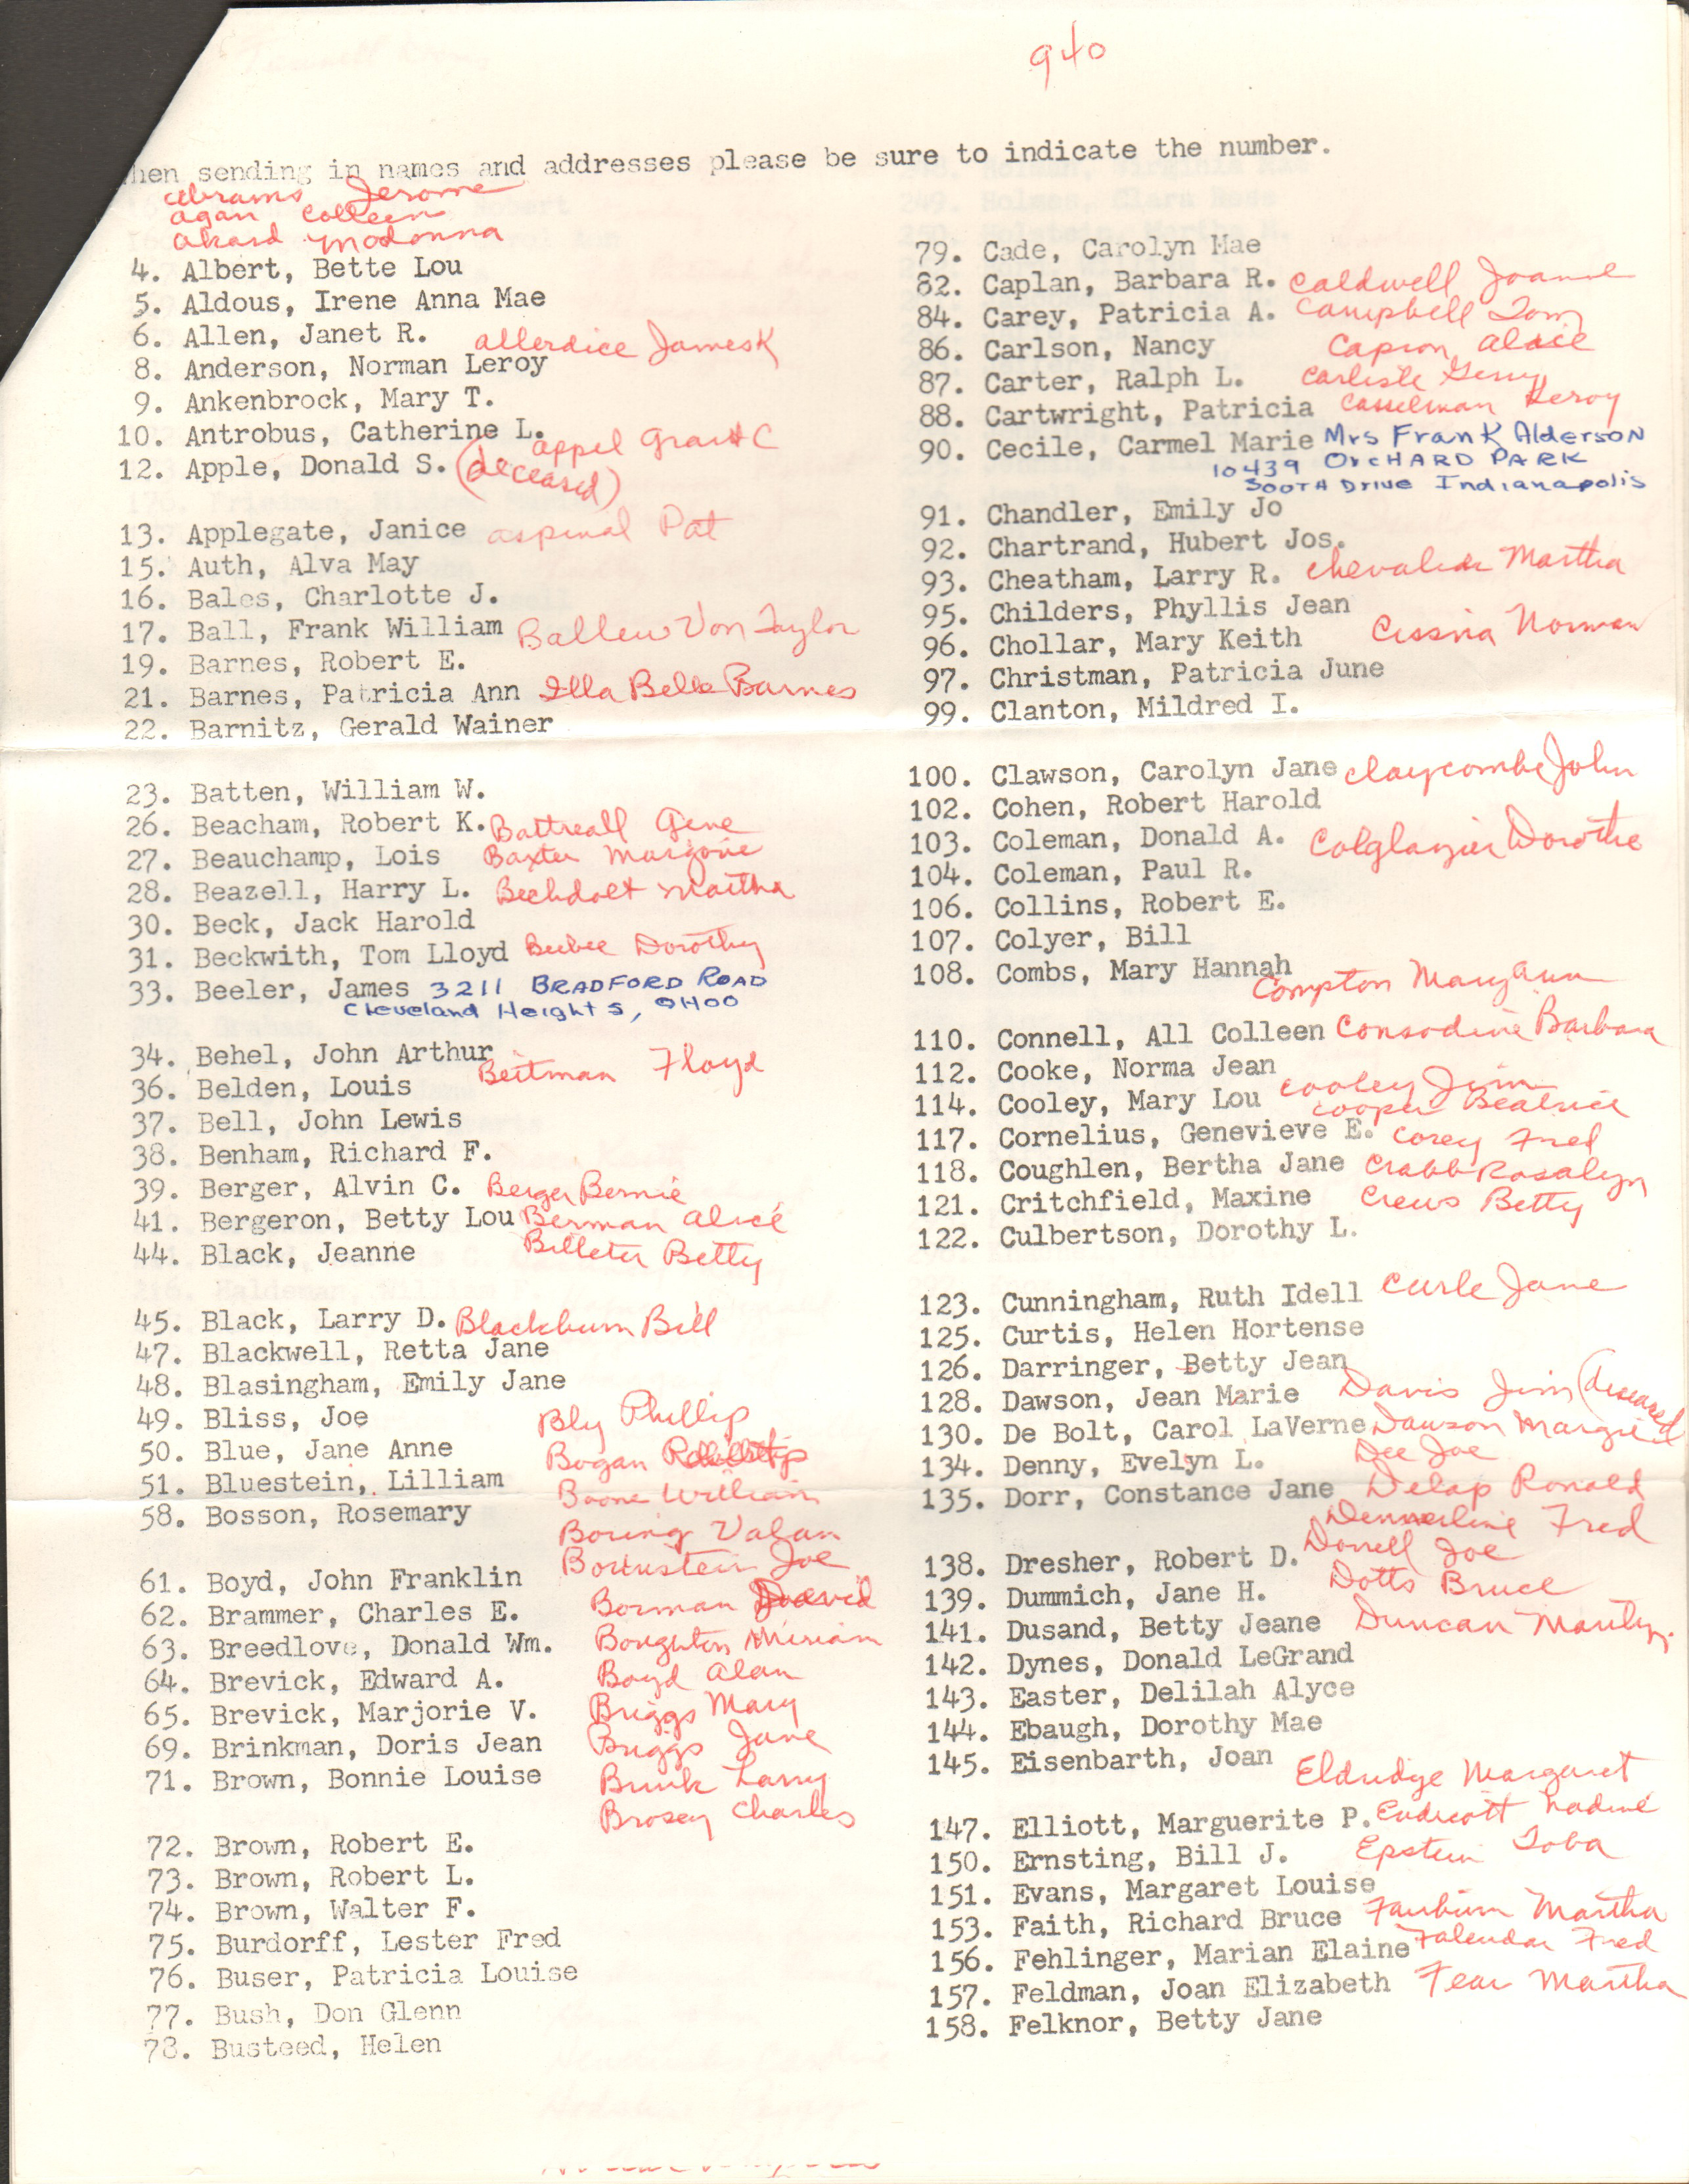 940
hen sending in names and addresses please be sure to indicate the number.
Abrams Jerome
Agan, Colleen
Akard Madonna
4. Albert, Bette Lou
5. Aldous, Irene Anna Mae
6. Allen, Janet R. Allerdice James K
8. Anderson, Norman Leroy
9. Ankenbrock, Mary T.
10. Antrobus, Catherine L. Appel Grant C
12. Apple, Donald S. (deceased)
13. Applegate, Janice Aspinal Pat
15. Auth, Alva May
16. Bales, Charlotte J.
17. Ball, Frank William Ballew Von Taylor
19. Barnes, Robert E.
21. Barnes, Patricia Ann Illa Belle Barnes
22. Barnitz, Gerald Wainer
23. Batten, William W.
26. Beacham, Robert K. Battreall Gene
27. Beauchamp, Lois Baxter Margorie
28. Beazell, Harry L. Bechdolt Martha
30. Beck, Jack Harold
31. Beckwith, Tom Lloyd Beebee Dorothy
33. Beeler, James 3211 BRADFORD ROAD
Cleveland Heights, OHOO
34. Behel, John Arthur
Beitman Floyd
36. Belden, Louis
37. Bell, John Lewis
38. Benham, Richard F.
39. Berger, Alvin C. Berger Bernie
41. Bergeron, Betty Lou Berman Alice
44. Black, Jeanne Billeter Betty
45. Black, Larry D. Blackburn Bill
47. Blackwell, Retta Jane
48. Blasingham, Emily Jane
49. Bliss, Joe Bly Phillip
50. Blue, Jane Anne Bogan
51. Bluestein, Lilliam Boone William
58. Bosson, Rosemary Boring Valan
Bornstein Joe
61. Boyd, John Franklin
62. Brammer, Charles E. Borman David
63. Breedlove, Donald Wm. Boughton Miriam
64. Brevick, Edward A. Boyd Alan
65. Brevick, Marjorie V. Briggs Mary
69. Brinkman, Doris Jean Briggs Jane
71. Brown, Bonnie Louise Brink Larry
Brosey Charles
72. Brown, Robert E.
73. Brown, Robert L.
74. Brown, Walter F.
75. Burdorff, Lester Fred
76. Buser, Patricia Louise
77. Bush, Don Glenn
78. Busteed, Helen
79. Cade, Carolyn Mae
82. Caplan, Barbara R. Caldwell Joanne
84. Carey, Patricia A. Campbell Tom
86. Carlson, Nancy Capron Alice
87. Carter, Ralph L. Carlisle Gerry
88. Cartwright, Patricia Casselman Leroy
90. Cecile, Carmel Marie Mrs Frank Alderson
10439 ORCHARD PARK
SOOTH DRIVE Indianapolis
91. Chandler, Emily Jo
92. Chartrand, Hubert Jos.
93. Cheatham, Larry R. Chevalier Martha
95. Childers, Phyllis Jean
96. Chollar, Mary Keith Cissna Norman
97. Christman, Patricia June
99. Clanton, Mildred I.
100. Clawson, Carolyn Jane Claycombe John
102. Cohen, Robert Harold
103. Coleman, Donald A. Colglazier Dorothe
104. Coleman, Paul R.
106. Collins, Robert E.
107. Colyer, Bill
108. Combs, Mary Hannah
Compton Mary Ann
110. Connell, All Colleen Consodine Barbara
112. Cooke, Norma Jean
114. Cooley, Mary Lou Cooley Jim
Cooper Beatrice
117. Cornelius, Genevieve E. Corey Fred
118. Coughlen, Bertha Jane Crabb Rosalyn
121. Critchfield, Maxine Crews Betty
122. Culbertson, Dorothy L.
123. Cunningham, Ruth Idell Curle Jane
125. Curtis, Helen Hortense
126. Darringer, Betty Jean
128. Dawson, Jean Marie Davis Jim (deceased
130. De Bolt, Carol LaVerne Dawson Margie
134. Denny, Evelyn L. Dee Joe
135. Dorr, Constance Jane Delap Ronald
Dennerline Fred
138. Dresher, Robert D. Donell Joe
139. Dummich, Jane H. Dotts Bruce
141. Dusand, Betty Jeane Duncan Marilyn
142. Dynes, Donald LeGrand
143. Easter, Delilah Alyce
144. Ebaugh, Dorothy Mae
145. Eisenbarth, Joan Eldridge Margaret
147. Elliott, Marguerite P. Endicott Nadine
150. Ernsting, Bill J. Epstein Toba
151. Evans, Margaret Louise
153. Faith, Richard Bruce Fairburn Martha
156. Fehlinger, Marian Elaine Falender Fred
157. Feldman, Joan Elizabeth Fear Martha
158. Felknor, Betty Jane